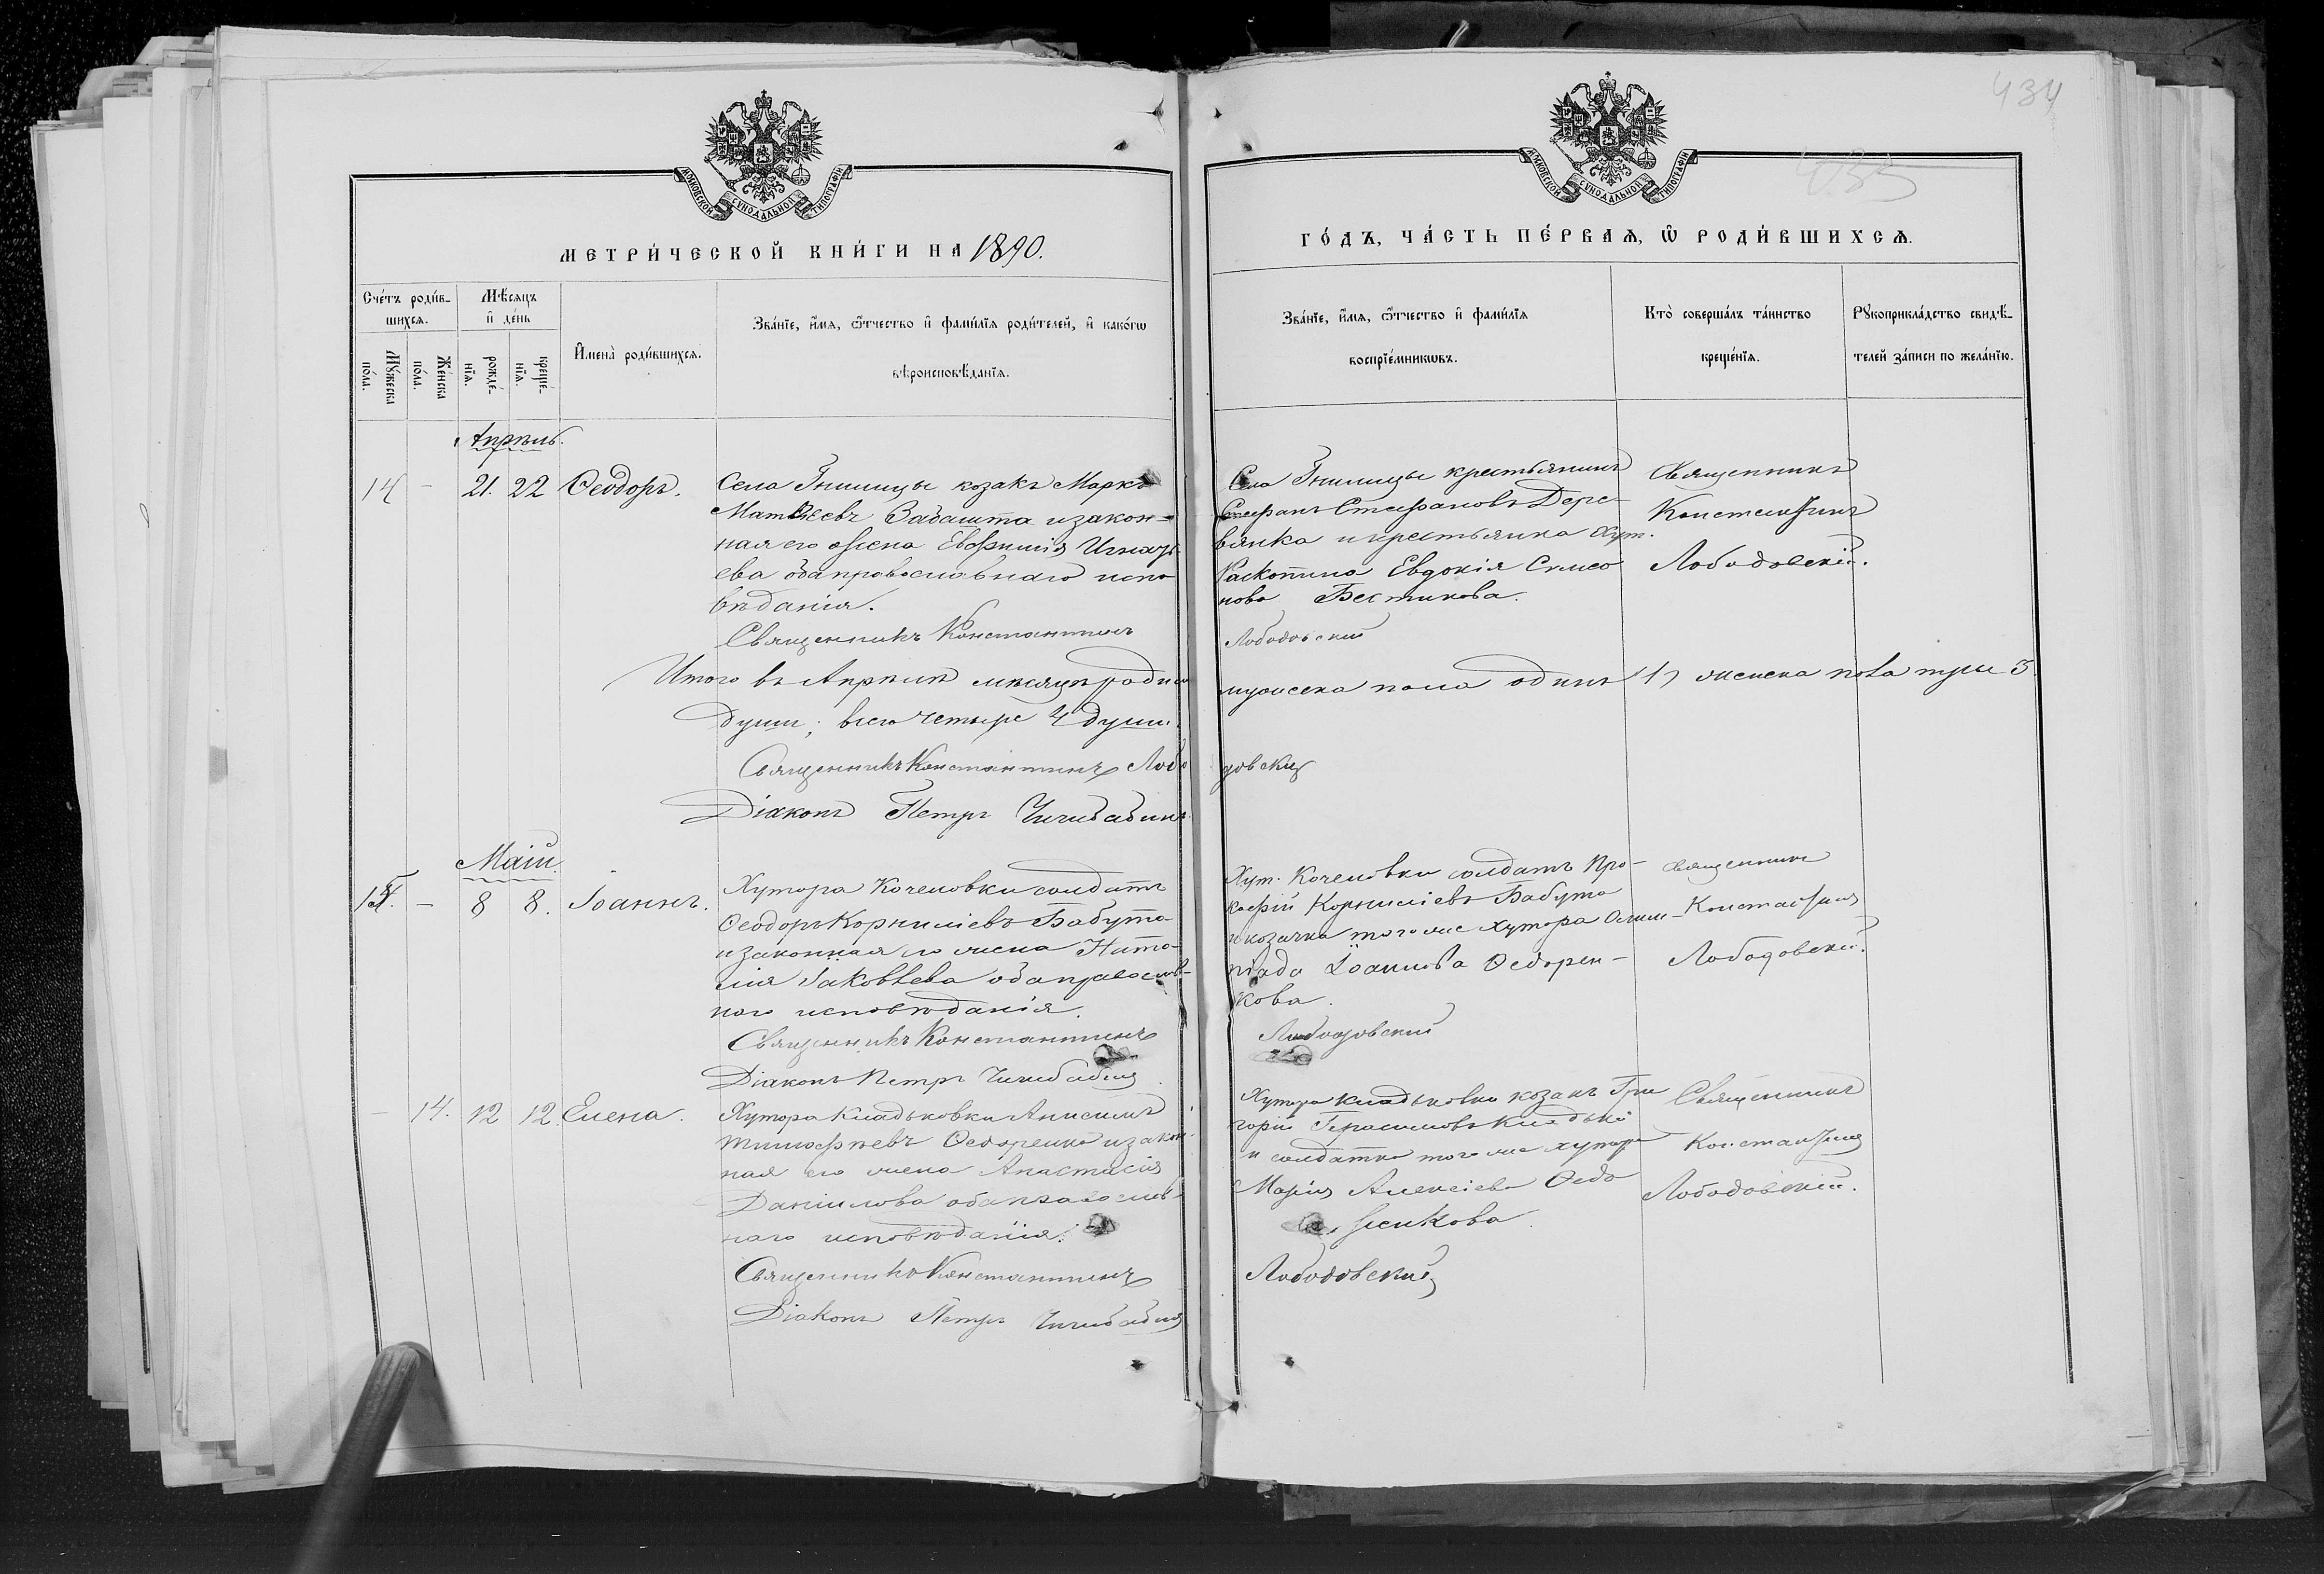 434
435
МОСКОВСКОЙ СѴНОДАЛЬНОЙ ТИПОГРАФІИ
МЕТРИ́ЧЕСКОЙ КНИ́ГИ НА 1890.
Сче́тъ роди́в-
шихсѧ.
Мꙋ́жеска
по́ла.
Же́нска
по́ла.
Мѣ́сѧцъ
и҆ де́нь
рожде́-
нїѧ.
креще́-
нїѧ.
И҆мена̀ роди́вшихсѧ.
Зва́нїе, и҆́мѧ, ѻ҆́тчество и҆ фами́лїѧ роди́телей, и҆ како́гѡ
вѣроисповѣ́данїѧ.
Апрѣль.
14 - 21. 22 Ѳеодоръ.
Села Гнилицы козакъ Маркъ
Матѳеевъ Забашта и закон-
ная его жена Евфимія Игнать
ева оба православнаго испо
вѣданія.
Священникъ Константинъ
Итого въ Апрѣлѣ мѣсяцѣ родил
души; всего четыре 4 души.
Священникъ Константинъ Лобо
Діаконъ Петръ Чичибабинъ
Маій.
15. - 8 8. Іоаннъ.
Хутора Кочеловки солдатъ
Ѳеодоръ Корниліевъ Бабута
и законная его жена Ната-
лія Іаковлева оба православ-
наго исповѣданія.
Священникъ Константинъ
Діаконъ Петръ Чичибабинъ
- 14. 12 12. Елена.
Хутора Кладьковки Анисимъ
Тимофѣевъ Ѳедоренко и закон-
ная его жена Анастасія
Даниилова оба православ-
наго исповѣданія.
Священникъ Константинъ
Діаконъ Петръ Чичибабинъ
МОСКОВСКОЙ СѴНОДАЛЬНОЙ ТИПОГРАФІИ
ГО́ДЪ, ЧА́СТЬ ПЕ́РВАѦ, Ѡ҆ РОДИ́ВШИХСѦ.
Зва́нїе, и҆́мѧ, ѻ҆́тчество и҆ фами́лїѧ
воспрїе́мникѡвъ.
Кто̀ соверша́лъ та́инство
креще́нїѧ.
Рꙋкоприкла́дство свидѣ́-
телей за́писи по жела́нїю.
Села Гнилицы крестьянинъ
Стефанъ Стефановъ Дере-
вянка и крестьянка хут.
Раскопина Евдокія Симео
нова Бестикова.
Священникъ
Константинъ
Лободовскій.
Лободовский
мужеска пола одинъ 1, женска пола три 3
довский
Хут. Кочеловки солдатъ Про-
кофій Корниліевъ Бабута
и козачка того же хутора Олим-
піада Іоаннова Ѳедорен-
кова.
Священникъ
Константинъ
Лободовскій.
Лободовский
Хутора Кладьковки козакъ Гри
горій Герасимовъ Кладько
и солдатка того же хутора
Марія Алексіева Ѳедо
ренкова.
Священникъ
Константинъ
Лободовскій.
Лободовский